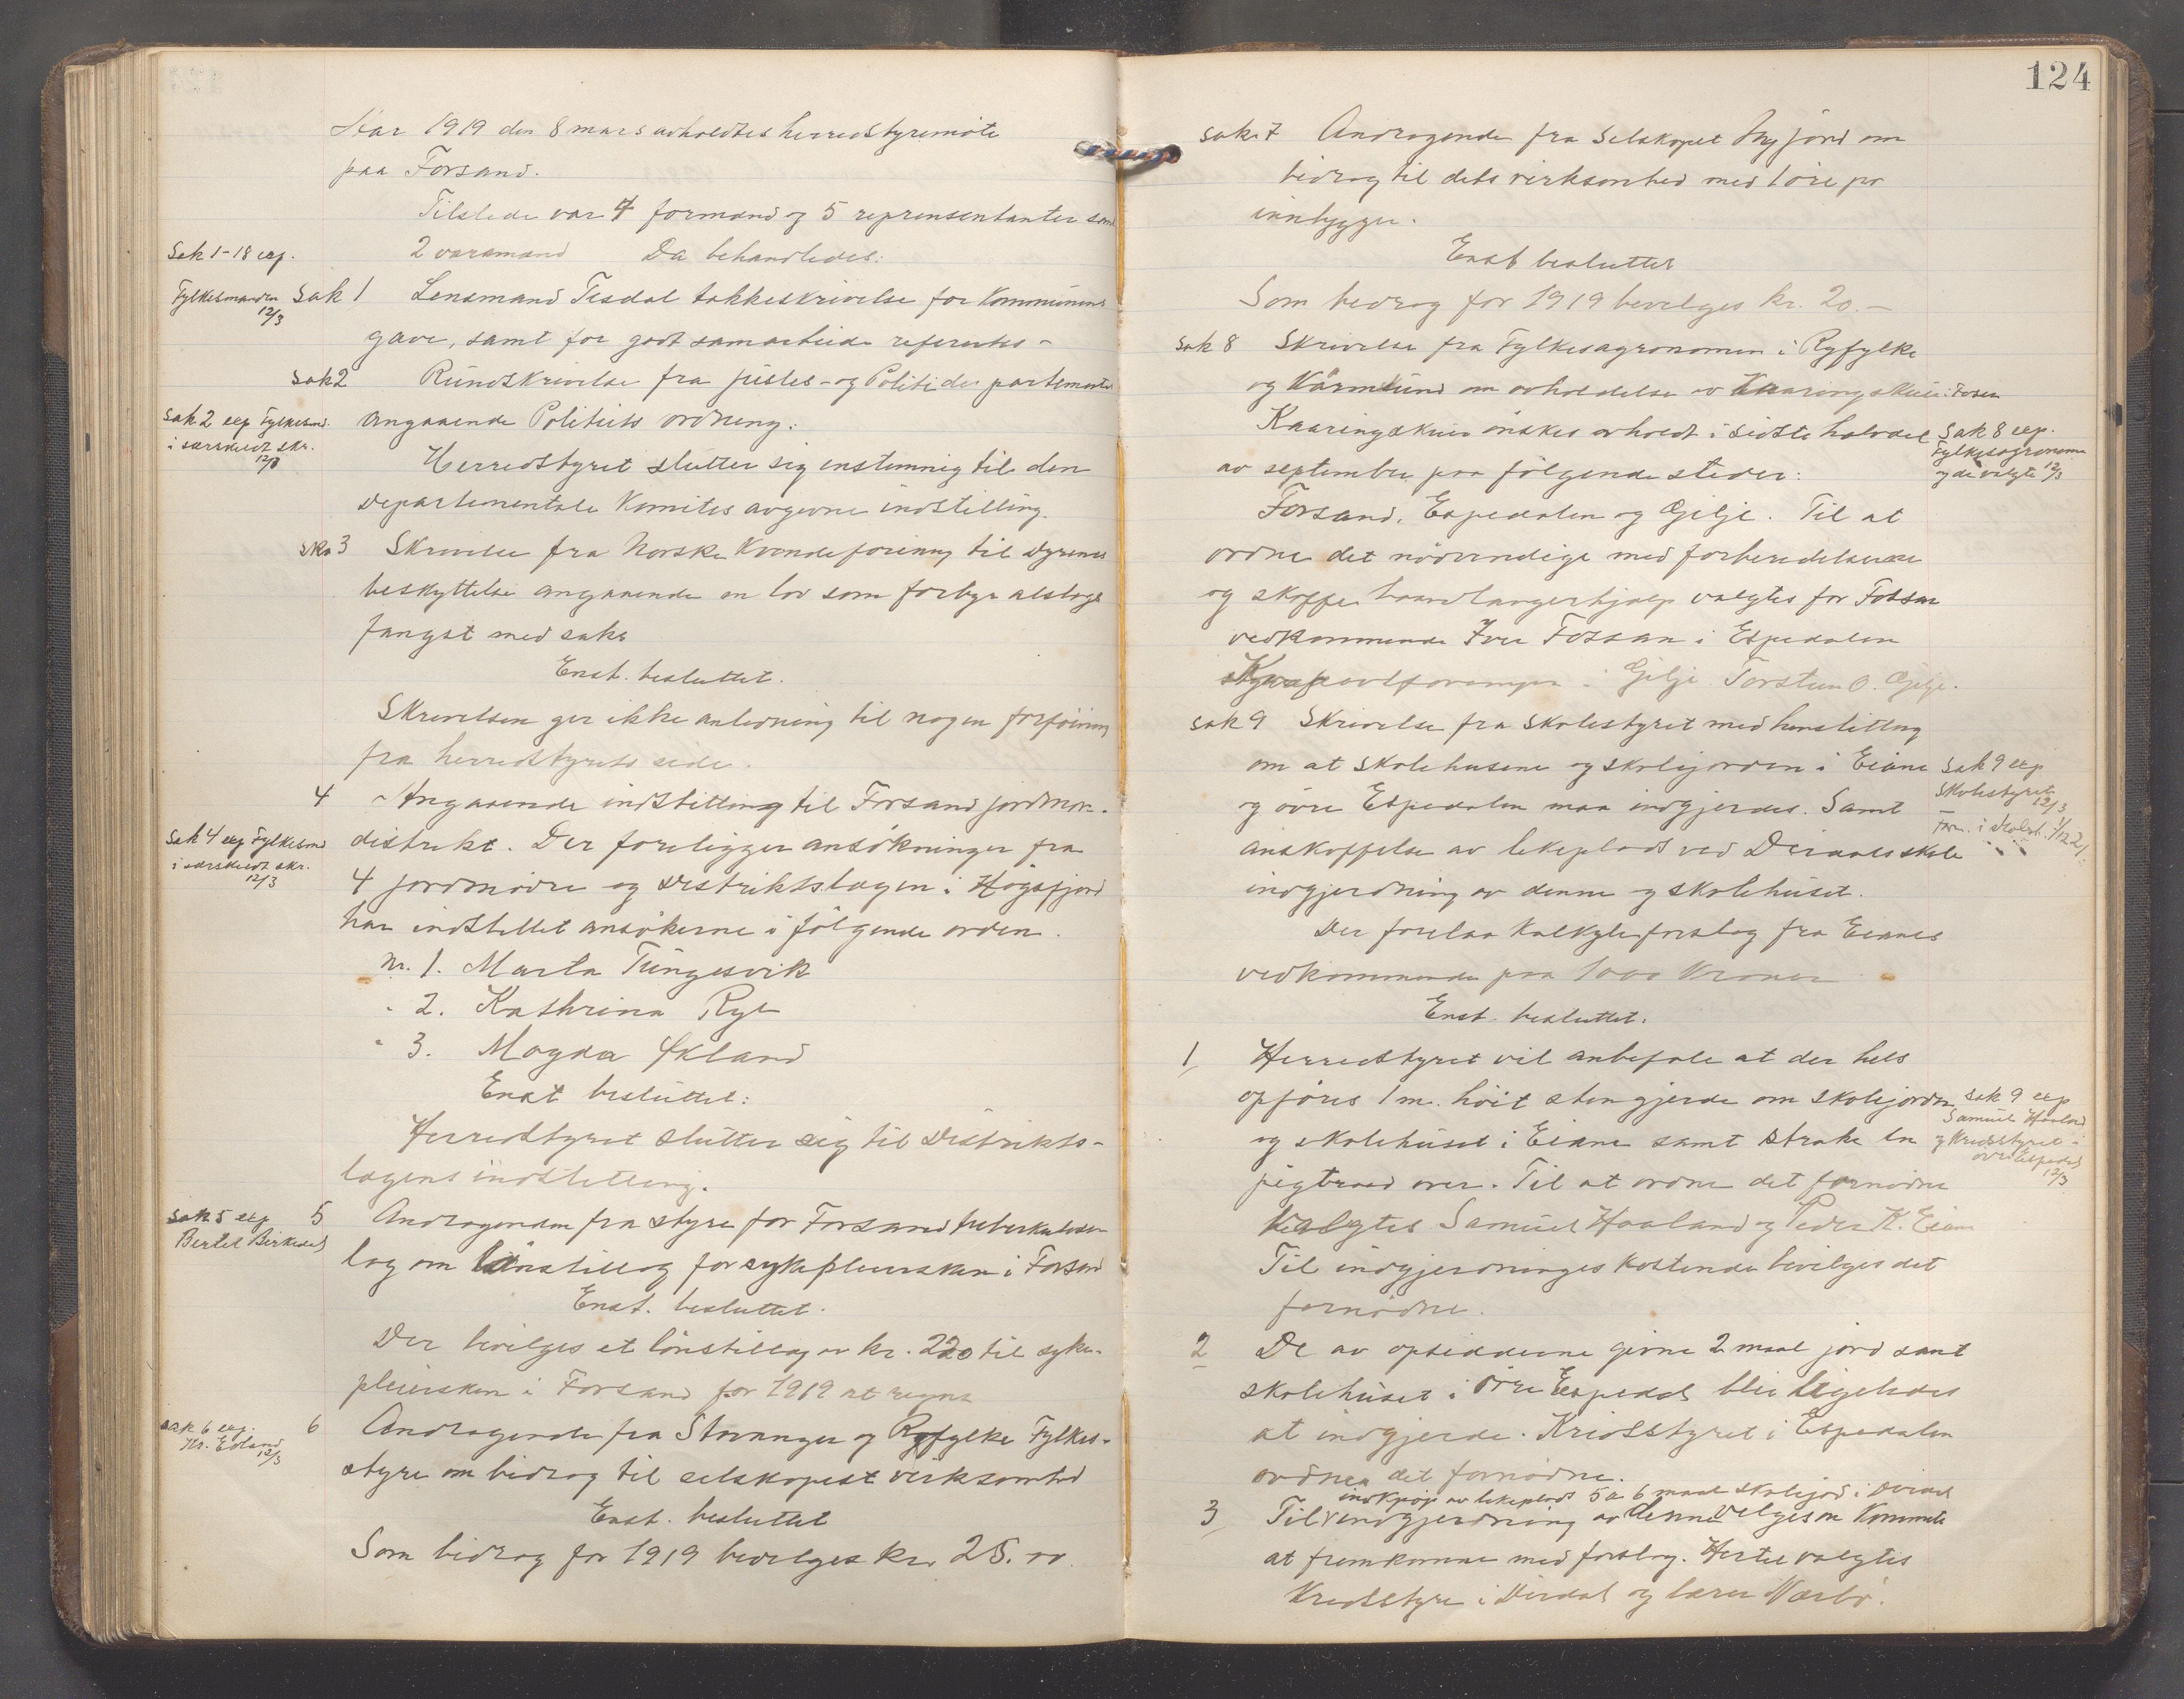 Aar 1919 den 8 mars avholdtes herredstyremöte
paa Forsand.
Tilstede var 4 formænd og 5 reprensentanter samt
2 varamænd Da behandledes:
Sak 1-18 exp.
Fylkesmanden
12/3
Sak 1 Lensmand Tesdal takkeskrivelse for Kommunens
gave, samt for godt samarbeide referertes -
Sak 2 Rundskrivelse fra justis- og Politidepartementet
sak 2 exp Fylkesmd.
i særskildt skr.
12/3
angaaende Politiets ordning.
Herredstyret slutter sig enstemmig til den
departementale Komites avgivne indstilling.
Sak 3 Skrivelse fra Norske Kvindeforening til Dyrenes
beskyttelse angaaende en lov som forbyr alslags
fangst med saks
Enst. besluttet.
Skrivelsen gir ikke anledning til nogen forföining
fra herredstyrets side.
4 Angaaende indstilling til Forsand jordmor-
sak 4 exp Fylkesmd
i særskildt skr.
12/3
distrikt. Der foreligger ansökninger fra
4 jordmödre og Distriktslægen i Högsfjord
har indstillet ansökerne i fölgende orden.
Nr. 1. Marta Tungesvik
" 2. Kathrina Rye
" 3. Magda Økland
Enst besluttet:
Herredstyret slutter sig til Distrikts-
lægens indstilling.
sak 5 exp
Bertel Birkedal
5 Andragende fra styre for Forsand tuberkulose-
lag om lönstillæg for sykepleiersken i Forsand
Enst. besluttet.
Der bevilges et lönstillæg av kr. 220 til syke-
pleiersken i Forsand for 1919 at regne
sak 6 exp.
Kr. Edland
12/3
6 Andragende fra Stavanger og Ryfylke Fylkes-
styre om bidrag til selskapets virksomhed
Enst. besluttet
Som bidrag for 1919 bevilges kr. 25.00.
124
sak 7 Andragende fra Selskapet Ny jord om
bidrag til dets virksomhed med 1 öre pr
innbygger.
Enst besluttet
Som bidrag for 1919 bevilges kr. 20.-
Sak 8 Skrivelse fra Fylkesagronomen i Ryfylke
og Karmsund om avholdelse av Kaaringskuer
Kaaringskuer önskes avholdt i sidste halvdel
Sak 8 exp.
Fylkesagronomen
og de valgte 12/3
av september paa fölgende steder:
Forsand, Espedalen og Gilje. Til at
ordne det nödvendige med forberedelserne
og skaffe haandlangerhjælp valgtes for Fossan
vedkommende Iver Fossan i Espedalen
i Gilje Torsten O. Gilje.
sak 9 Skrivelse fra Skolestyret med henstilling
om at skolehusene og skolejorden i Eiane
sak 9 exp
Skolestyret
12/3
og övre Espedalen maa indgjerdes. Samt
anskaffelse av lekeplads ved Dirdals skole
indgjerdning av denne og skolehuset.
Der forelaa Kalkyleforslag fra Eianes
vedkommende paa 1000 Kroner
Enst. besluttet.
1 Herredstyret vil anbefale at der hels
opföres 1 m. höit stengjerde om skolejorden
sak 9 exp
Samuel Haaland
og Kredsstyret i
övre Espedal
12/3
og skolehuset i Eiane samt strake en
pigtraad over. Til at ordne det fornödne
valgtes Samuel Haaland og Peder K. Eiane
Til indgjerdninges kostende bevilges det
fornödne.
2 De av opsidderne givne 2 maal jord samt
skolehuset i övre Espedal blir ligeledes
at indgjerde. Kredsstyret i Espedalen
ordner det fornödne.
indkjöp av lekeplads 5 a 6 maal skolejord i Dirdal
3 Til indgjerdning av denne velges en Kommite
at fremkomme med forslag. Hertil valgtes
Kredsstyre i Dirdal og lærer Nærbö.